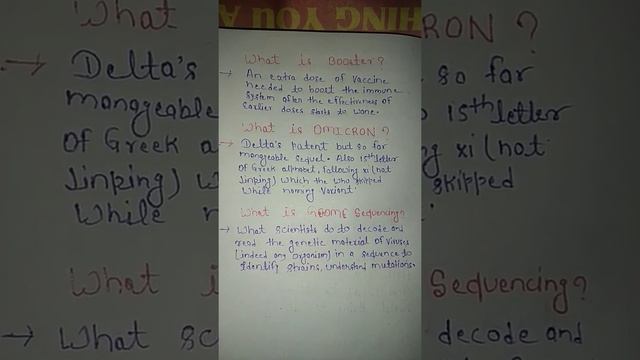 What is Booster?
→ An extra dose of Vaccine
needed to boost the immune
System after the effectiveness of
Earlier doses starts to wane.
What is OMICRON?
→ Delta's patent but so far
mangeable sequel. Also 15th letter
Of Greek alphabet, following xi (not
Jinping) which the Who skipped
While naming Variant
What is Sequencing?
→ What scientists do to decode and
read the genetic material of Viruses
[indeed any organism] in a sequence to
Identify strains, understand mutations.